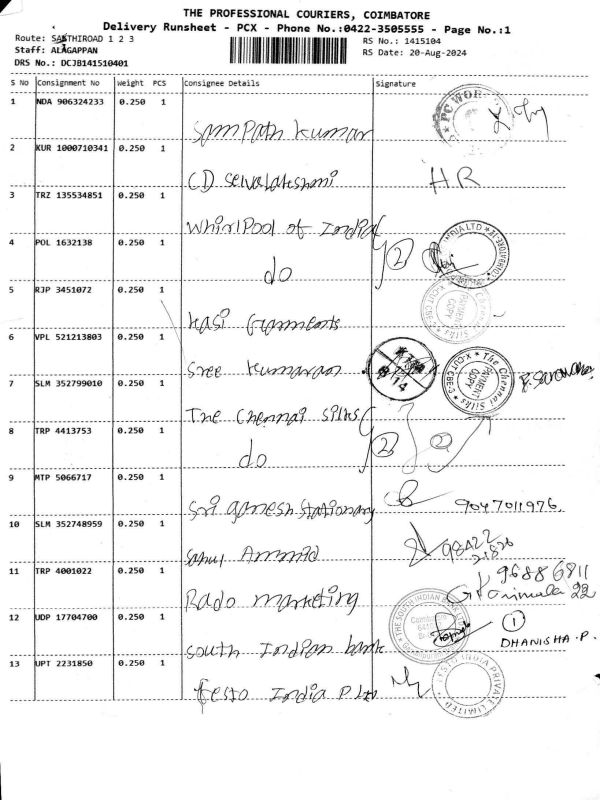 THE PROFESSIONAL COURIERS, COIMBATORE
Delivery Runsheet - PCX - Phone No.:0422-3505555 - Page No.:1
Route: SAKTHIROAD 1 2 3
RS No.: 1415104
Staff: ALAGAPPAN
RS Date: 20-Aug-2024
DRS No.: DCJB141510401
S No Consignment No Weight PCS Consignee Details Signature
1 NDA 906324233 0.250 1
Sampath Kumar
2 KUR 1000710341 0.250 1
CD Selvalakshmi H.R
3 TRZ 135534851 0.250 1
Whirlpool of India
4 POL 1632138 0.250 1
do 2
5 RJP 3451072 0.250 1
Kasi Garments
6 VPL 521213803 0.250 1
Sree Kumaran
7 SLM 352799010 0.250 1
The Chennai Silks
8 TRP 4413753 0.250 1
do 2 2
9 MTP 5066717 0.250 1
Sri Ganesh Stationary 9047011976.
10 SLM 352748959 0.250 1
98422
21826
11 TRP 4001022 0.250 1
96886811
22
Rado marketing
12 UDP 17704700 0.250 1
South Indian bank 1
DHANISHA.P.
13 UPT 2231850 0.250 1
festo India P Ltd
PC WOR
INDIA LTD
The Chennai Silks
PAYMENT COPY
THE SOUTH INDIAN BANK
FESTO INDIA PRIVATE LIMITED